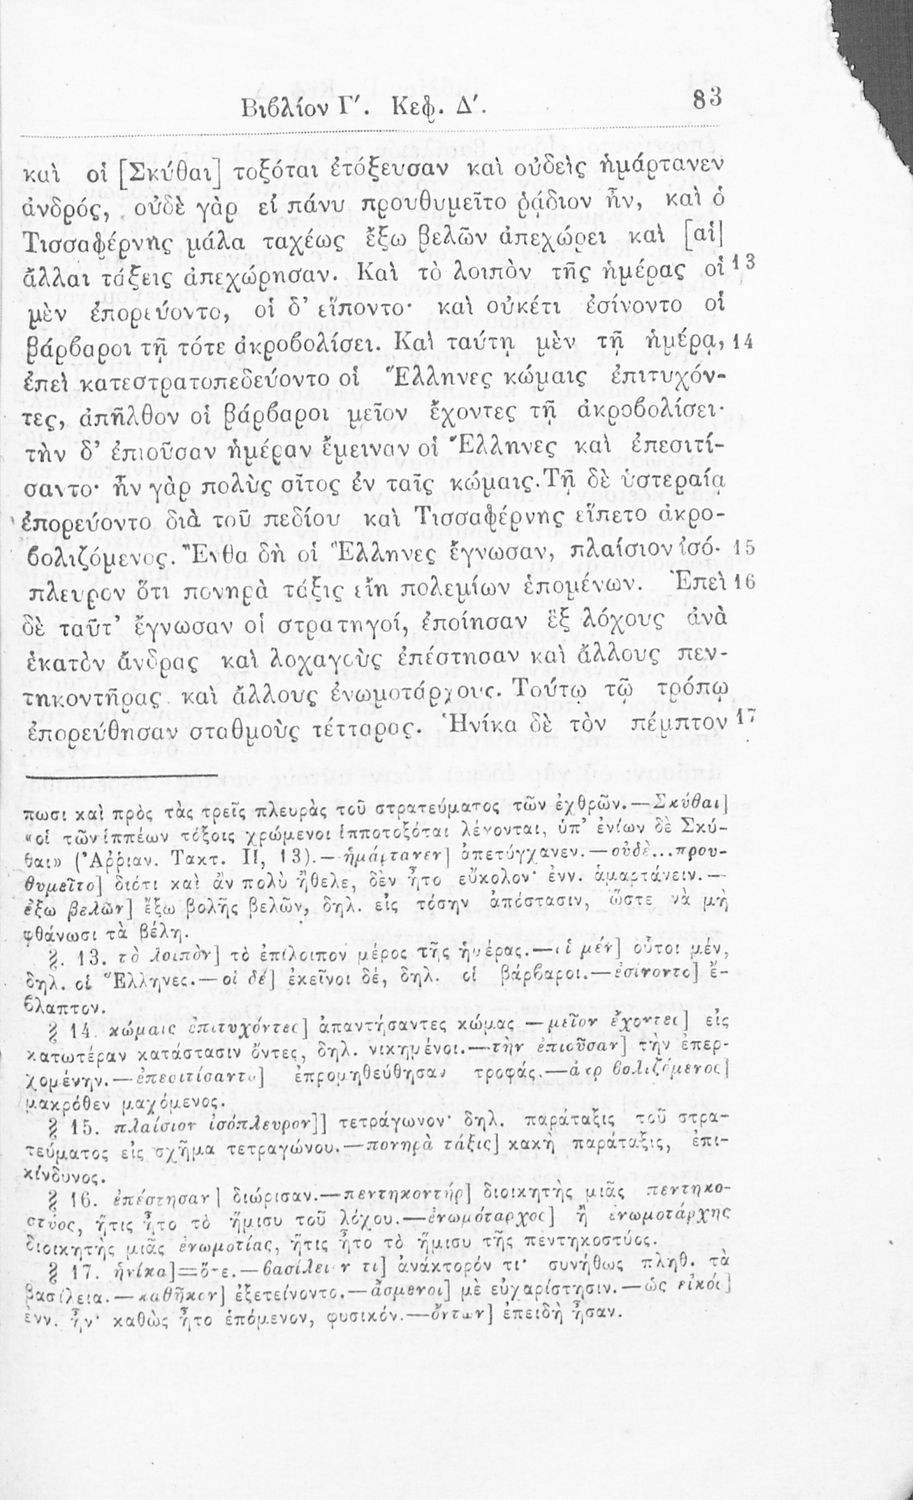 Βιβλίον Γ′. Κεφ. Δ′.
83
καὶ οἱ [Σκύθαι] τοξόται ἐτόξευσαν καὶ οὐδεὶς ἡμάρτανεν
ἀνδρός, οὐδὲ γὰρ εἰ πάνυ προυθυμεῖτο ῥᾴδιον ἦν, καὶ ὁ
Τισσαφέρνης μάλα ταχέως ἔξω βελῶν ἀπεχώρει καὶ [αἱ]
ἄλλαι τάξεις ἀπεχώρησαν. Καὶ τὸ λοιπὸν τῆς ἡμέρας οἱ 13
μὲν ἐπορεύοντο, οἱ δ’ εἵποντο· καὶ οὐκέτι ἐσίνοντο οἱ
βάρβαροι τῇ τότε ἀκροβολίσει. Καὶ ταύτῃ μὲν τῇ ἡμέρᾳ, 14
ἐπεὶ κατεστρατοπεδεύοντο οἱ Ἕλληνες κώμαις ἐπιτυχόν-
τες, ἀπῆλθον οἱ βάρβαροι μεῖον ἔχοντες τῇ ἀκροβολίσει·
τὴν δ’ ἐπιοῦσαν ἡμέραν ἔμειναν οἱ Ἕλληνες καὶ ἐπεσιτί-
σαντο· ἦν γὰρ πολὺς σῖτος ἐν ταῖς κώμαις. Τῇ δὲ ὑστεραίᾳ
ἐπορεύοντο διὰ τοῦ πεδίου καὶ Τισσαφέρνης εἵπετο ἀκρο-
βολιζόμενος. Ἔνθα δὴ οἱ Ἕλληνες ἔγνωσαν, πλαίσιον ἰσό- 15
πλευρον ὅτι πονηρὰ τάξις εἴη πολεμίων ἑπομένων. Ἐπεὶ 16
δὲ ταῦτ’ ἔγνωσαν οἱ στρατηγοί, ἐποίησαν ἓξ λόχους ἀνὰ
ἑκατὸν ἄνδρας καὶ λοχαγοὺς ἐπέστησαν καὶ ἄλλους πεν-
τηκοντῆρας καὶ ἄλλους ἐνωμοτάρχους. Τούτῳ τῷ τρόπῳ
ἐπορεύθησαν σταθμοὺς τέτταρας. Ἡνίκα δὲ τὸν πέμπτον 17
πωσι καὶ πρὸς τὰς τρεῖς πλευρὰς τοῦ στρατεύματος τῶν ἐχθρῶν.—Σκύθαι]
«οἱ τῶν ἱππέων τόξοις χρώμενοι ἱπποτοξόται λέγονται, ὑπ’ ἐνίων δὲ Σκύ-
θαι» (Ἀρριαν. Τακτ. ΙΙ, 13).—ἡμάρτανεν] ἀπετύγχανεν.—οὐδὲ...πρου-
θυμεῖτο] διότι καὶ ἂν πολὺ ἤθελε, δὲν ἦτο εὔκολον· ἐνν. ἁμαρτάνειν.—
ἔξω βελῶν] ἔξω βολῆς βελῶν, δηλ. εἰς τόσην ἀπόστασιν, ὥστε νὰ μὴ
φθάνωσι τὰ βέλη.
§. 13. τὸ λοιπὸν] τὸ ἐπίλοιπον μέρος τῆς ἡμέρας.—οἱ μέν] οὗτοι μέν,
δηλ. οἱ Ἕλληνες.—οἱ δέ] ἐκεῖνοι δέ, δηλ. οἱ βάρβαροι.—ἐσίνοντο] ἔ-
βλαπτον.
§ 14. κώμαις ἐπιτυχόντες] ἀπαντήσαντες κώμας —μεῖον ἔχοντες] εἰς
κατωτέραν κατάστασιν ὄντες, δηλ. νικημένοι.—τὴν ἐπιοῦσαν] τὴν ἐπερ-
χομένην.—ἐπεσιτίσαντο] ἐπρομηθεύθησαν τροφάς.—ἀκροβολιζόμενος]
μακρόθεν μαχόμενος.
§ 15. πλαίσιον ἰσόπλευρον]] τετράγωνον· δηλ. παράταξις τοῦ στρα-
τεύματος εἰς σχῆμα τετραγώνου.—πονηρὰ τάξις] κακὴ παράταξις, ἐπι-
κίνδυνος.
§ 16. ἐπέστησαν] διώρισαν.—πεντηκοντήρ] διοικητὴς μιᾶς πεντηκο-
στύος, ἥτις ἦτο τὸ ἥμισυ τοῦ λόχου.—ἐνωμόταρχος] ἢ ἐνωμοτάρχης
διοικητὴς μιᾶς ἐνωμοτίας, ἥτις ἦτο τὸ ἥμισυ τῆς πεντηκοστύος.
§ 17. ἡνίκα]=ὅτε.—βασίλειόν τι] ἀνάκτορόν τι· συνήθως πληθ. τὰ
βασίλεια.—καθῆκον] ἐξετείνοντο.—ἄσμενοι] μὲ εὐχαρίστησιν.—ὡς εἰκός]
ἐνν. ἦν· καθὼς ἦτο ἑπόμενον, φυσικόν.—ὄντων] ἐπειδὴ ἦσαν.